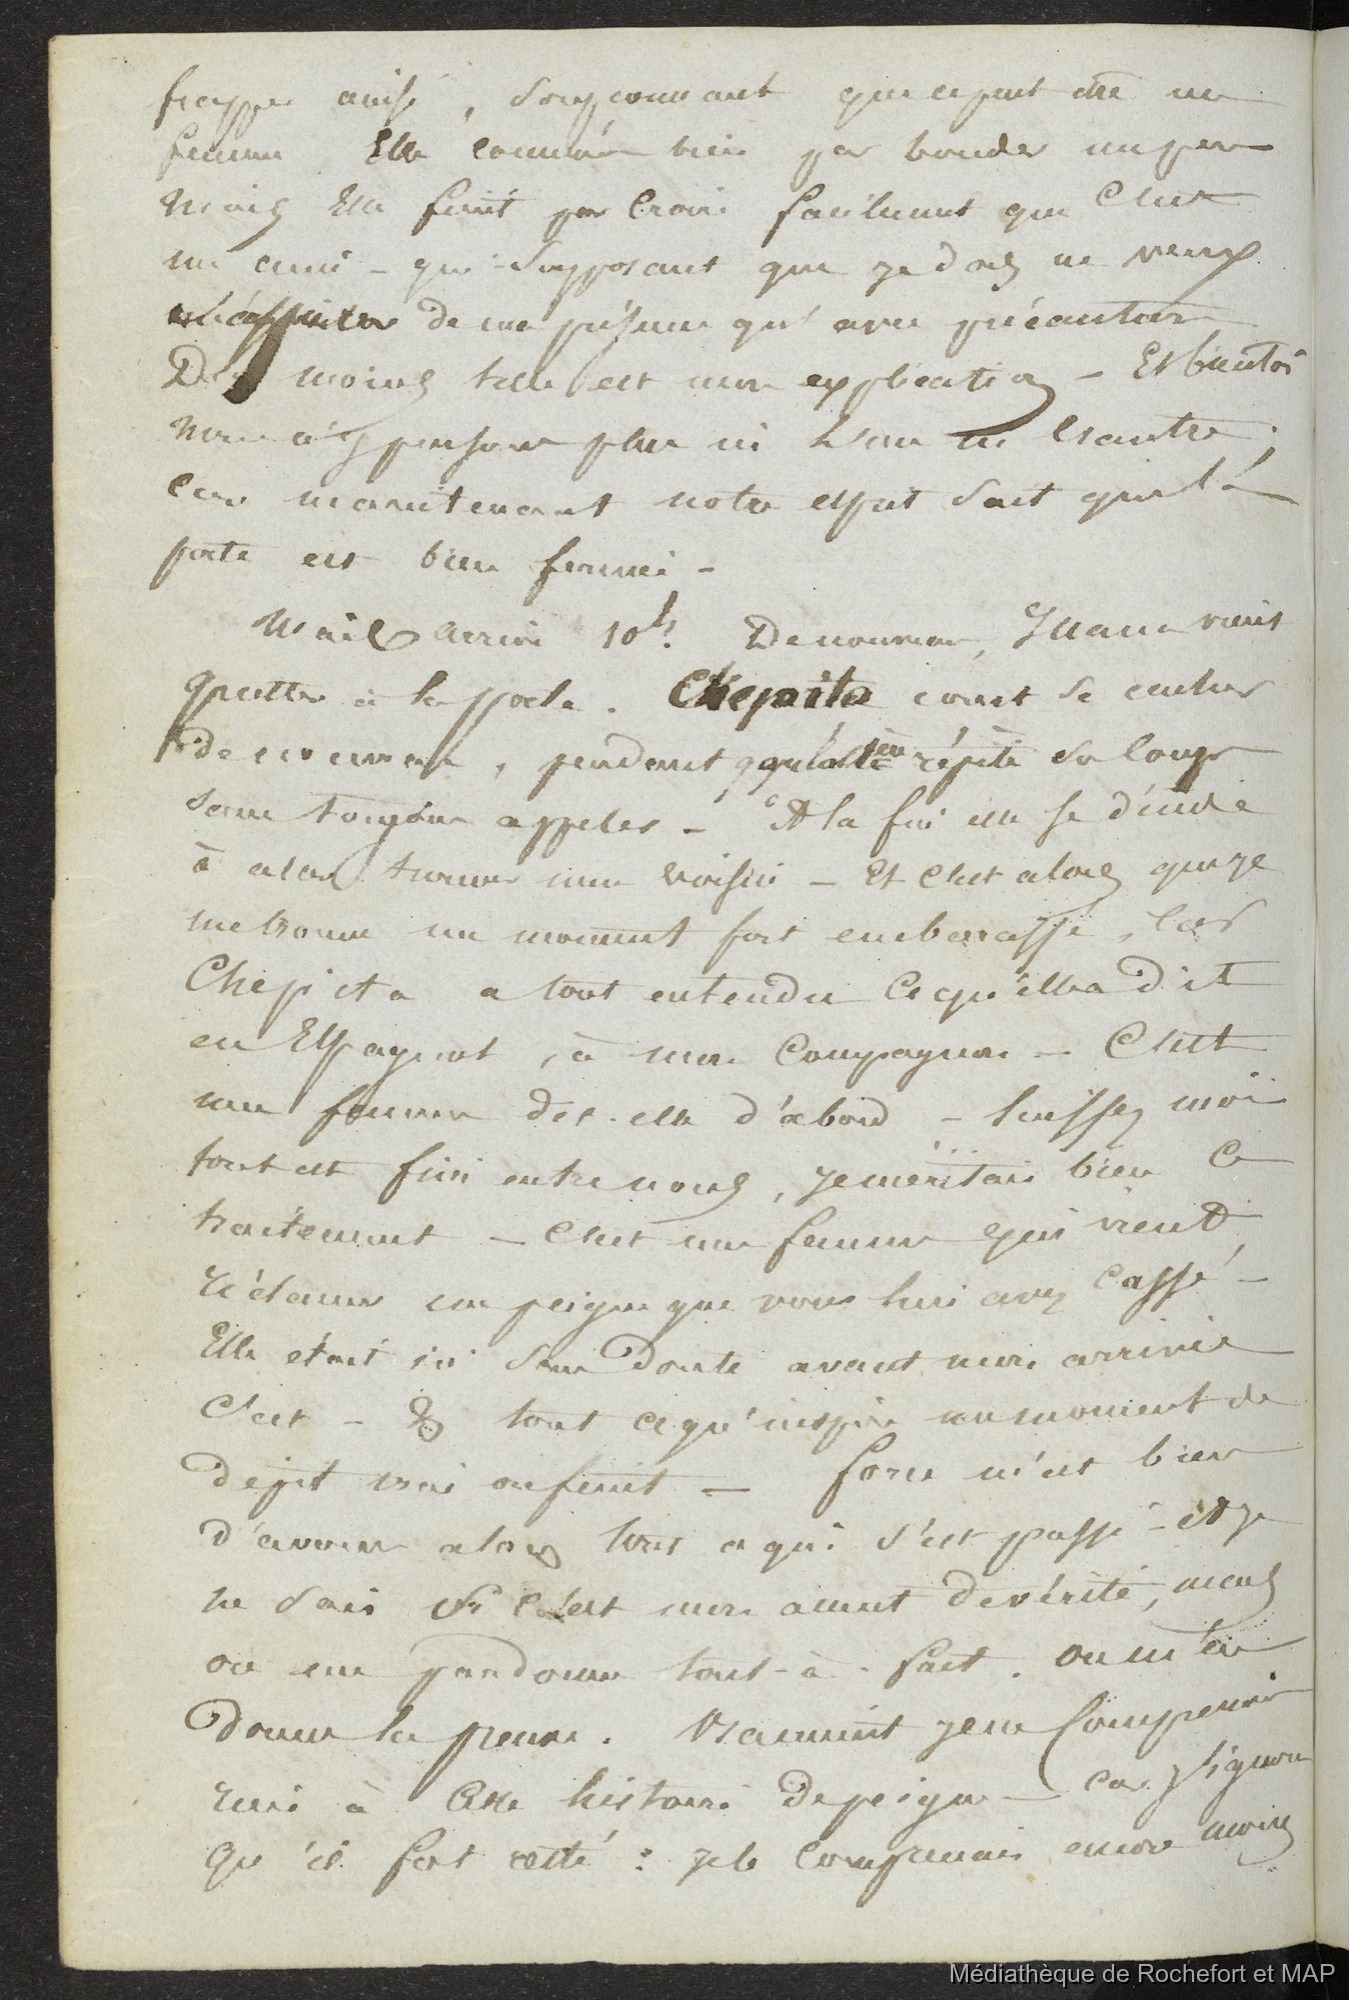 frapper ainsi, soupçonnant que ce peut être une
femme Elle commence bien par bouder un peu
Mais elle finit par croire facilement que C'est
un ami - qui supposant que je dors ne veut
s'assurer de ma présence qu'avec précaution
Du moins telle est mon explication - Et bientôt
nous n'y pensons plus ni l'un ni l'autre,
car maintenant notre esprit sait que la
porte est bien fermée -
Mais arrive 10h. De nouveau, Juana vient
gratter à la porte. Chepita court se cacher
de nouveau, pendant que l'autre répète ses coups
sans toujours appeler - A la fin elle se décide
à aller trouver mon voisin - Et C'est alors que je
me trouve un moment fort embarassé, car
Chepita a tout entendu ce qu'elle a dit
en Espagnol, à mon Compagnon - C'est
une femme dit-elle d'abord - laissez moi
tout est fini entre nous, je méritais bien ce
traitement - C'est une femme qui vient
réclamer un peigne que vous lui avez cassé -
Elle était ici sans doute avant mon arrivée
C'est - & tout ce qu'inspire un moment de
dépit vrai ou feint - Force m'est bien
d'avouer alors tout ce qui s'est passé - et je
ne sais si c'est mon accent de vérité, mais
on me pardonne tout-à-fait. On m'en
donne la preuve. Vraiment je ne comprenais
rien à cette histoire de peigne - car j'ignorais
qu'il fut cassé : je le comprenais encore moins
Médiathèque de Rochefort et MAP